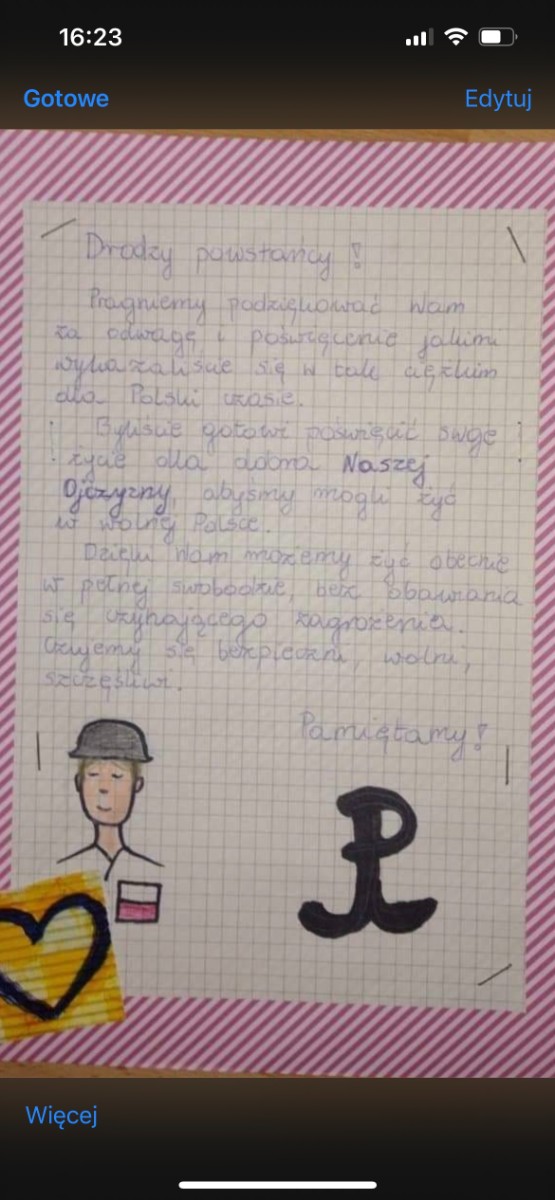 16:23
Gotowe
Edytuj
Drodzy powstańcy!
Pragniemy podziękować Wam
za odwagę i poświęcenie jakimi
wykazaliście się w tak ciężkim
dla Polski czasie.
Byliście gotowi poświęcić swoje
życie dla dobra Naszej
Ojczyzny, abyśmy mogli żyć
w wolnej Polsce.
Dzięki Wam możemy żyć obecnie
w pełnej swobodzie, bez obawiania
się czyhającego zagrożenia.
Czujemy się bezpieczni, wolni,
szczęśliwi.
Pamiętamy!
Więcej